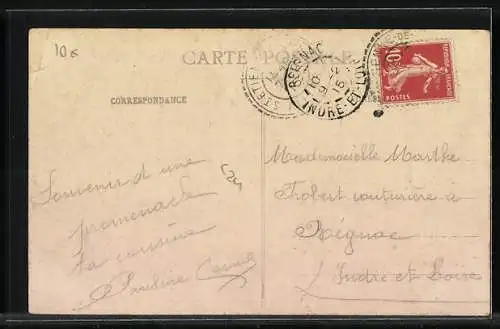 10€
CARTE POSTALE
REIGNAC
10
INDRE-ET-LOIRE
10
POSTES
CORRESPONDANCE
Souvenir d'une
promenade
ta cousine
Pauline
Mademoiselle Marthe
Frobert couturière à
Reignac
Indre et Loire